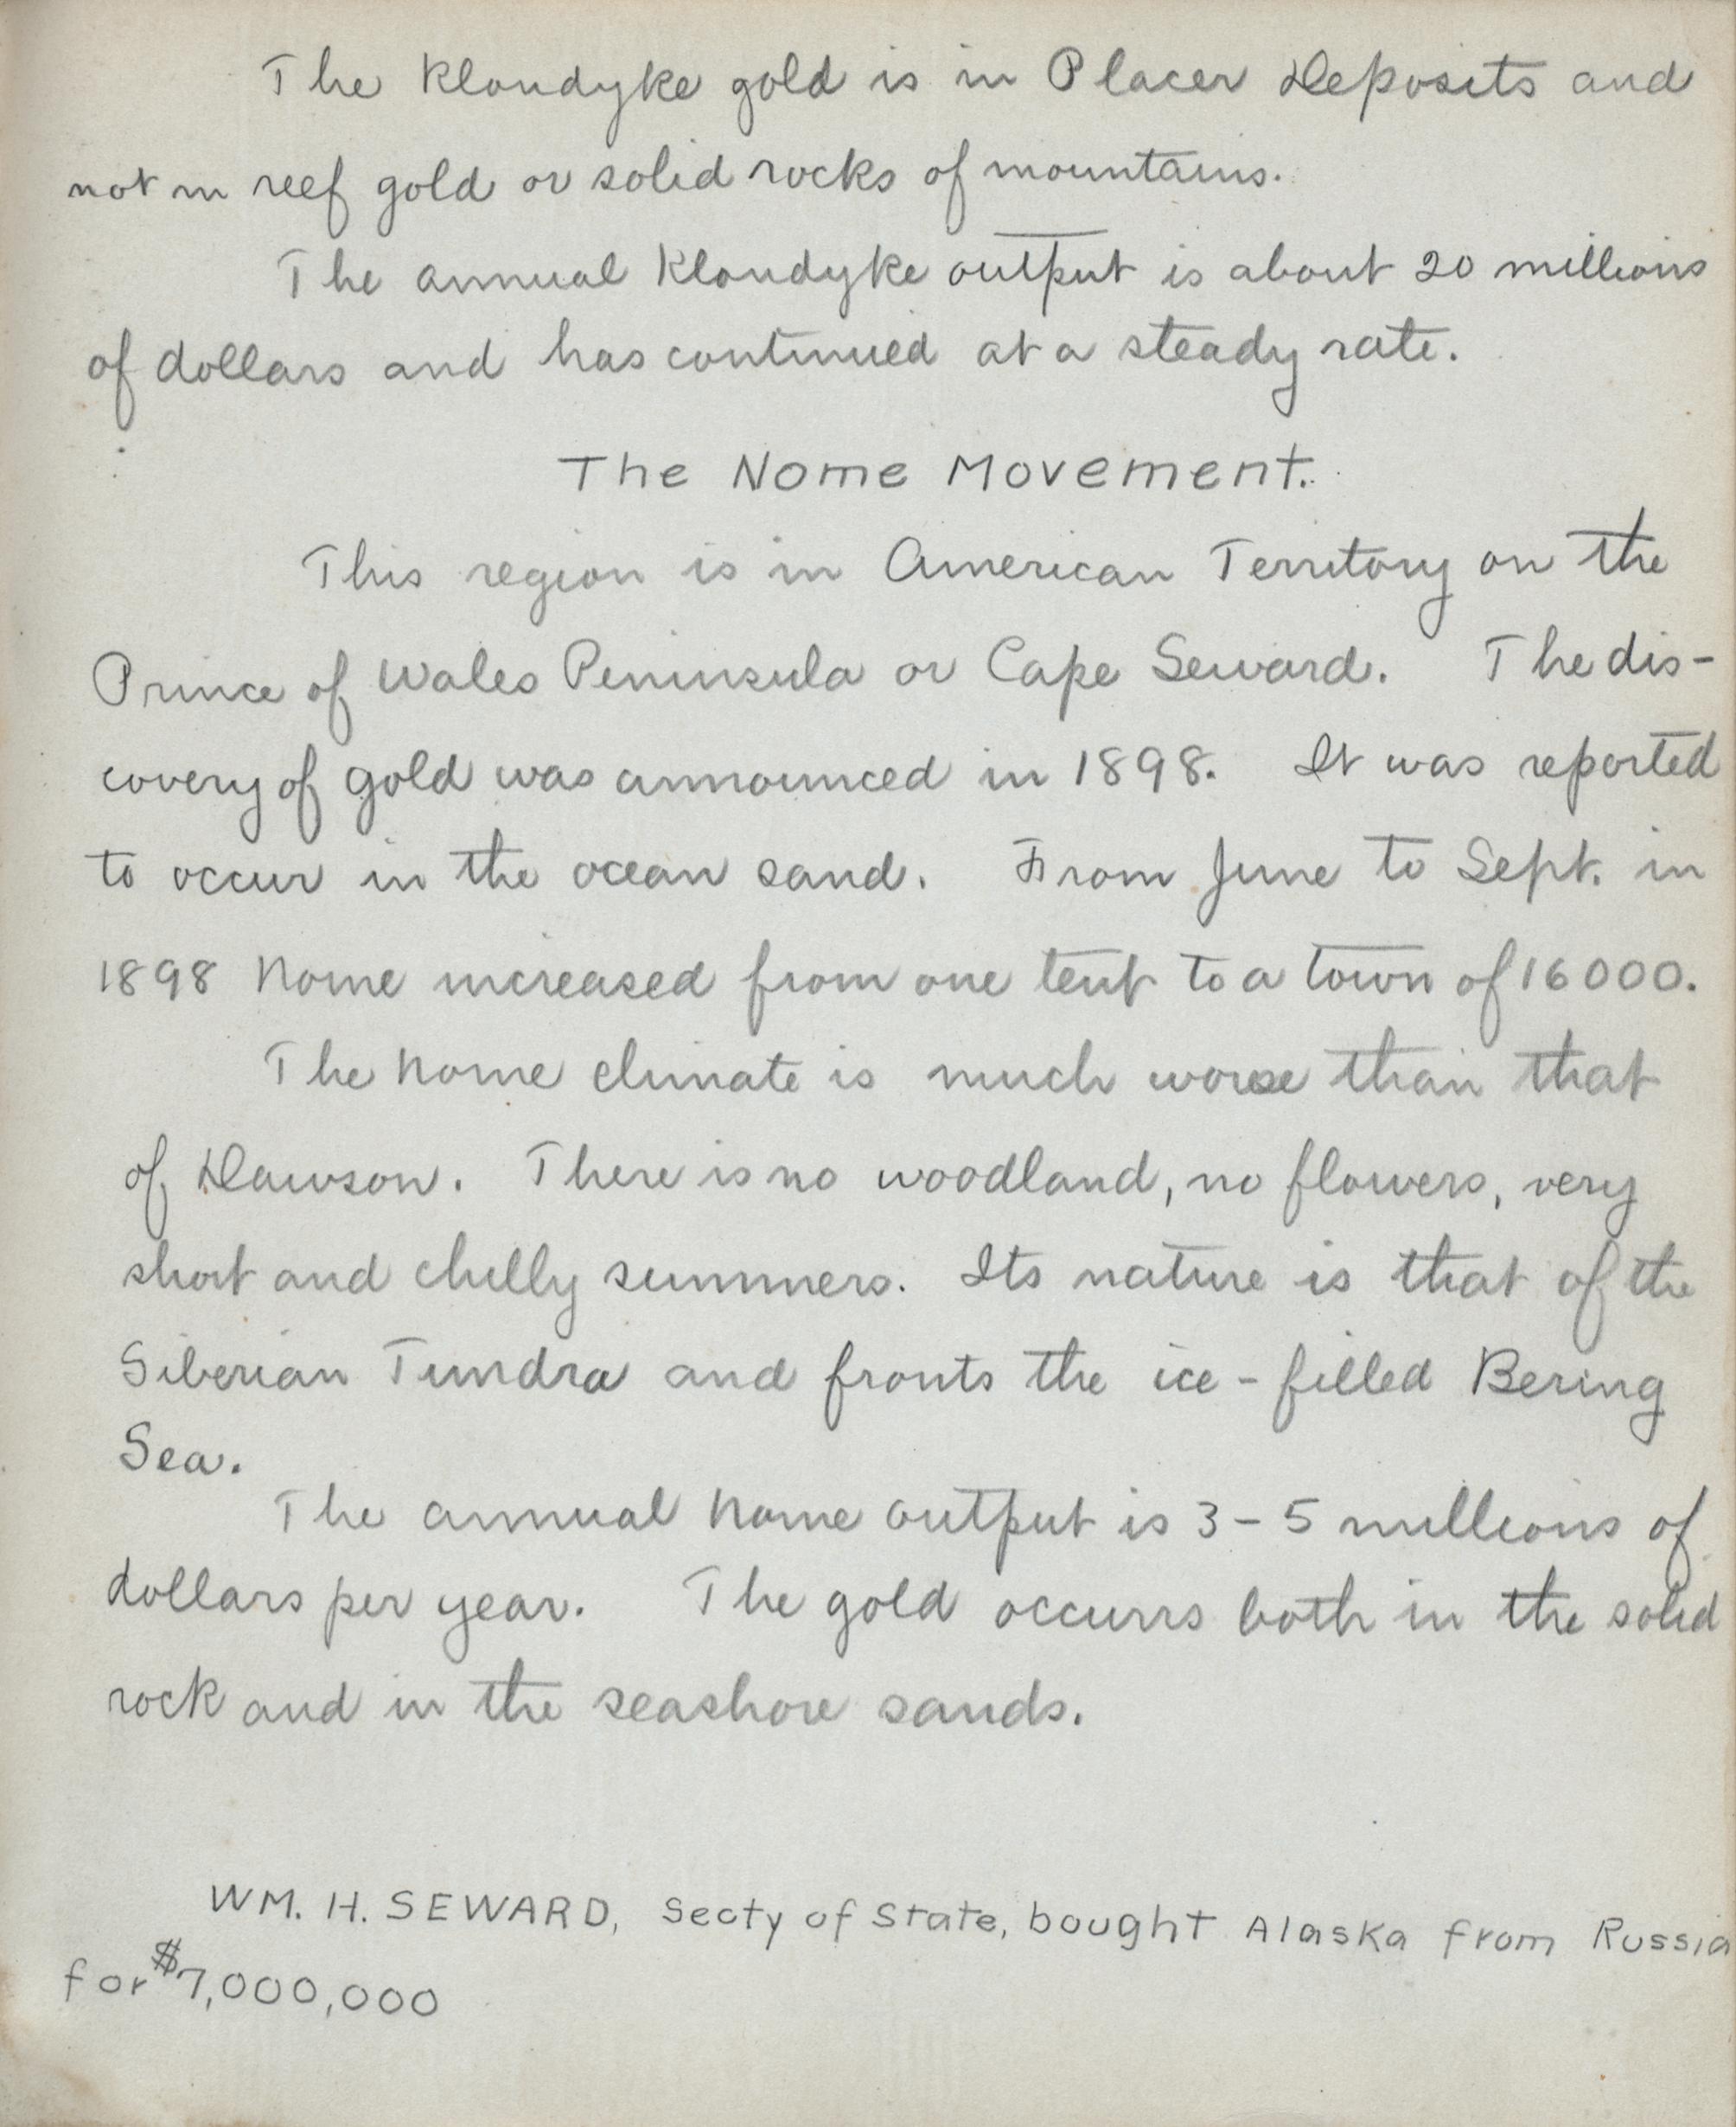 The Klondyke gold is in Placer Deposits and
not in reef gold or solid rocks of mountains.
The annual Klondyke output is about 20 millions
of dollars and has continued at a steady rate.
The Nome Movement.
This region is in American Territory on the
Prince of Wales Peninsula or Cape Seward. The dis-
covery of gold was announced in 1898. It was reported
to occur in the ocean sand. From June to Sept. in
1898 Nome increased from one tent to a town of 16000.
The Nome climate is much worse than that
of Dawson. There is no woodland, no flowers, very
short and chilly summers. Its nature is that of the
Siberian Tundra and fronts the ice-filled Bering
Sea.
The annual Nome output is 3-5 millions of
dollars per year. The gold occurrs both in the solid
rock and in the seashore sands.
WM. H. SEWARD, Secty of State, bought Alaska from Russia
for $7,000,000